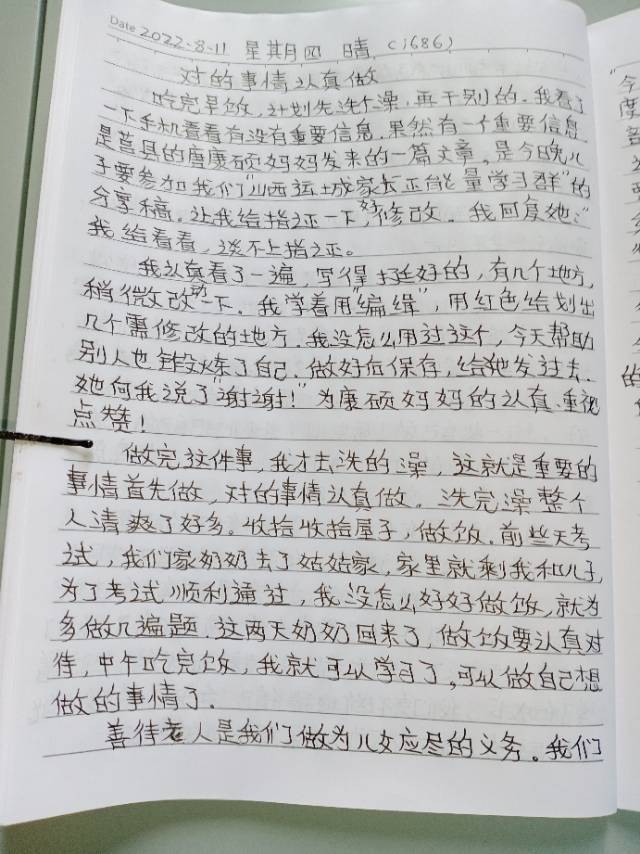 Date 2022.8.11 星期四 晴 (1686)
对的事情认真做
吃完早饭,计划先洗个澡,再干别的。我看了
一下手机看看有没有重要信息,果然有一个重要信息,
是莒县的唐康硕妈妈发来的一篇文章,是今晚儿
子要参加我们“山西运城家长正能量学习群”的
分享稿。让我给指正一下,好修改。我回复她:“
我给看看,谈不上指正。
我认真看了一遍,写得挺好的,有几个地方,
稍微改动一下。我学着用“编缉”,用红色给划出
几个需修改的地方。我没怎么用过这个,今天帮助
别人也锻炼了自己。做好后保存,给她发过去。
她向我说了“谢谢!”为康硕妈妈的认真、重视
点赞!
做完这件事,我才去洗的澡,这就是重要的
事情首先做,对的事情认真做。洗完澡整个
人清爽了好多。收拾收拾屋子,做饭。前些天考
试,我们家奶奶去了姑姑家,家里就剩我和儿子,
为了考试顺利通过,我没怎么好好做饭,就为
多做几遍题。这两天奶奶回来了,做饭要认真对
待,中午吃完饭,我就可以学习了,可以做自己想
做的事情了。
善待老人是我们做为儿女应尽的义务。我们
“今
的